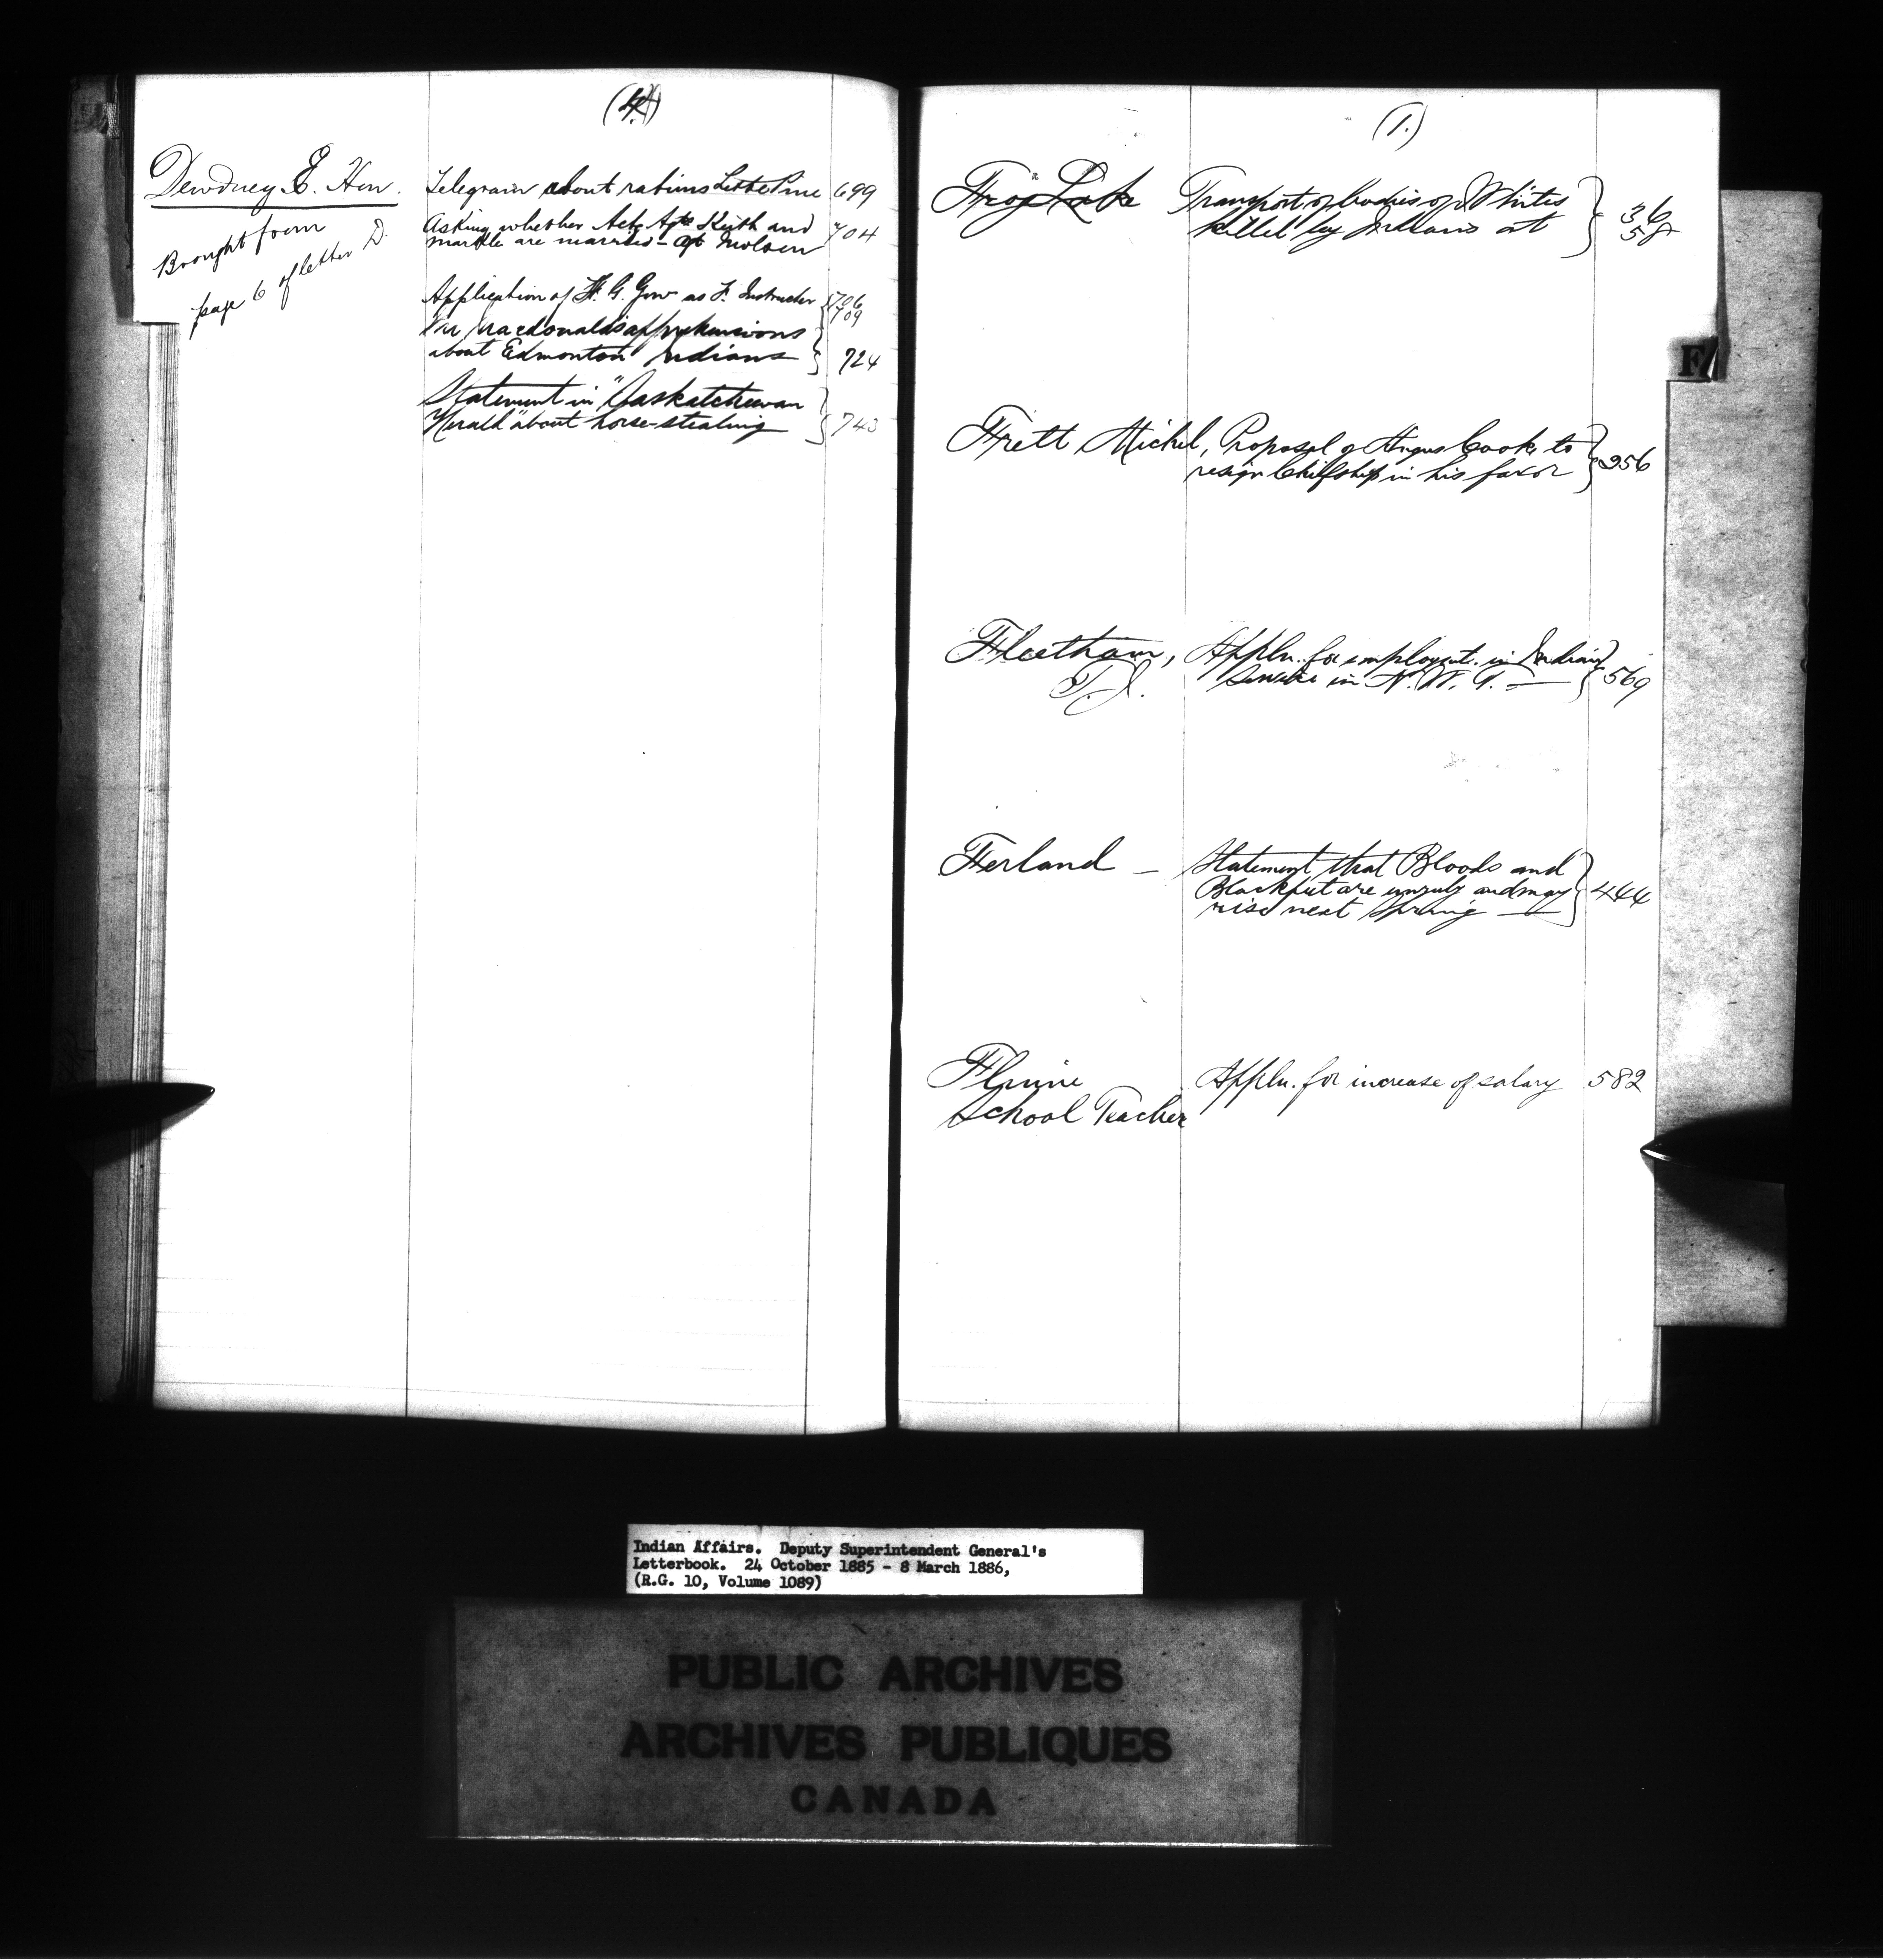 (4)
Dewdney E. Hon.
Brought from
page 6 of letter D.
Telegram about rations Little Pine 699
Asking whether Actg Agts Keith and 704
Markle are married - Agt McIvern
Application of H. G. Gow as F. Instructor 706
709
Mr Macdonald's apprehensions
about Edmonton Indians 724
Statement in "Saskatchewan
Herald" about horse-stealing 743
(1.)
Frog Lake Transport of bodies of Whites 36
killed by Indians at 58
F
Frett Michel, Proposal of Angus Cook to
resign Chiefship in his favor 356
Fleetham, Appln. for employmt. in Indian
T. J. Service in N. W. T. — 569
Ferland — Statement that Bloods and
Blackfeet are unruly and may 444
rise next Spring —
Flynn Appln. for increase of salary 582
School Teacher
Indian Affairs. Deputy Superintendent General's
Letterbook. 24 October 1885 - 8 March 1886,
(R.G. 10, Volume 1089)
PUBLIC ARCHIVES
ARCHIVES PUBLIQUES
CANADA